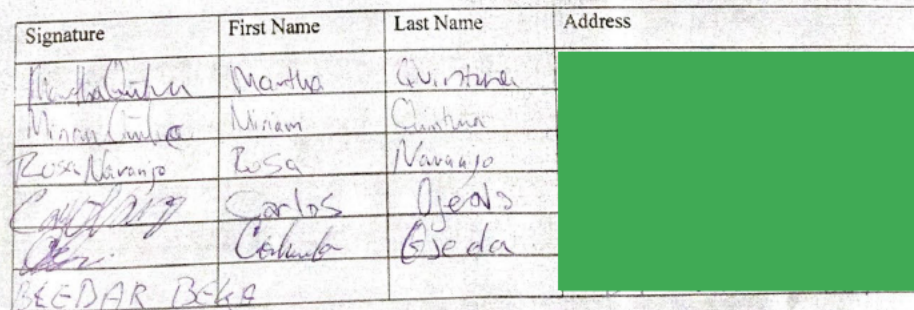 Signature First Name Last Name Address
Martha Quintana Martha Quintana
Miriam Miriam Quintana
Rosa Naranjo Rosa Naranjo
Carlos Ojeda
Ojeda
BEEDAR BEKA